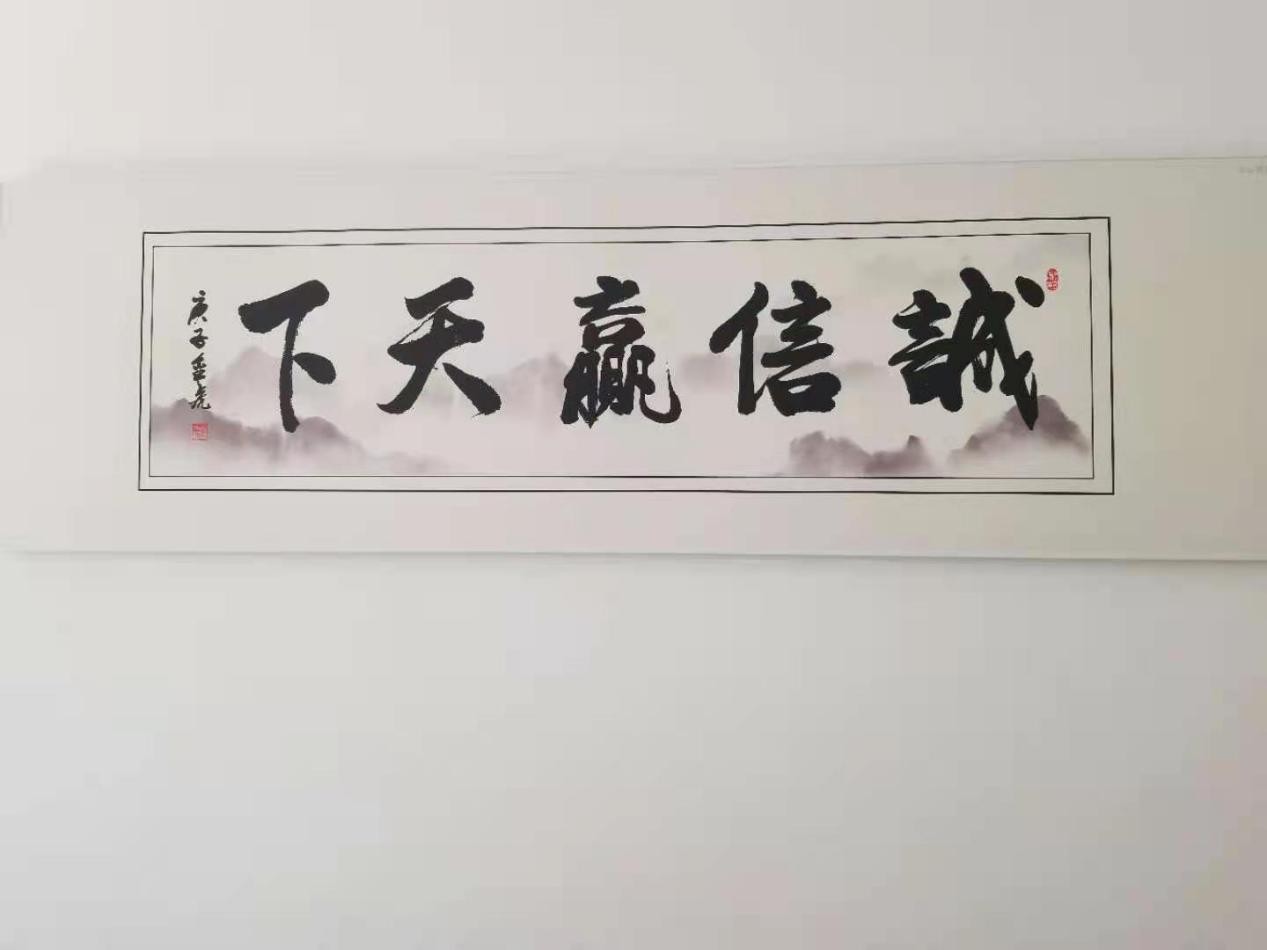 誠信贏天下
庚子金虎